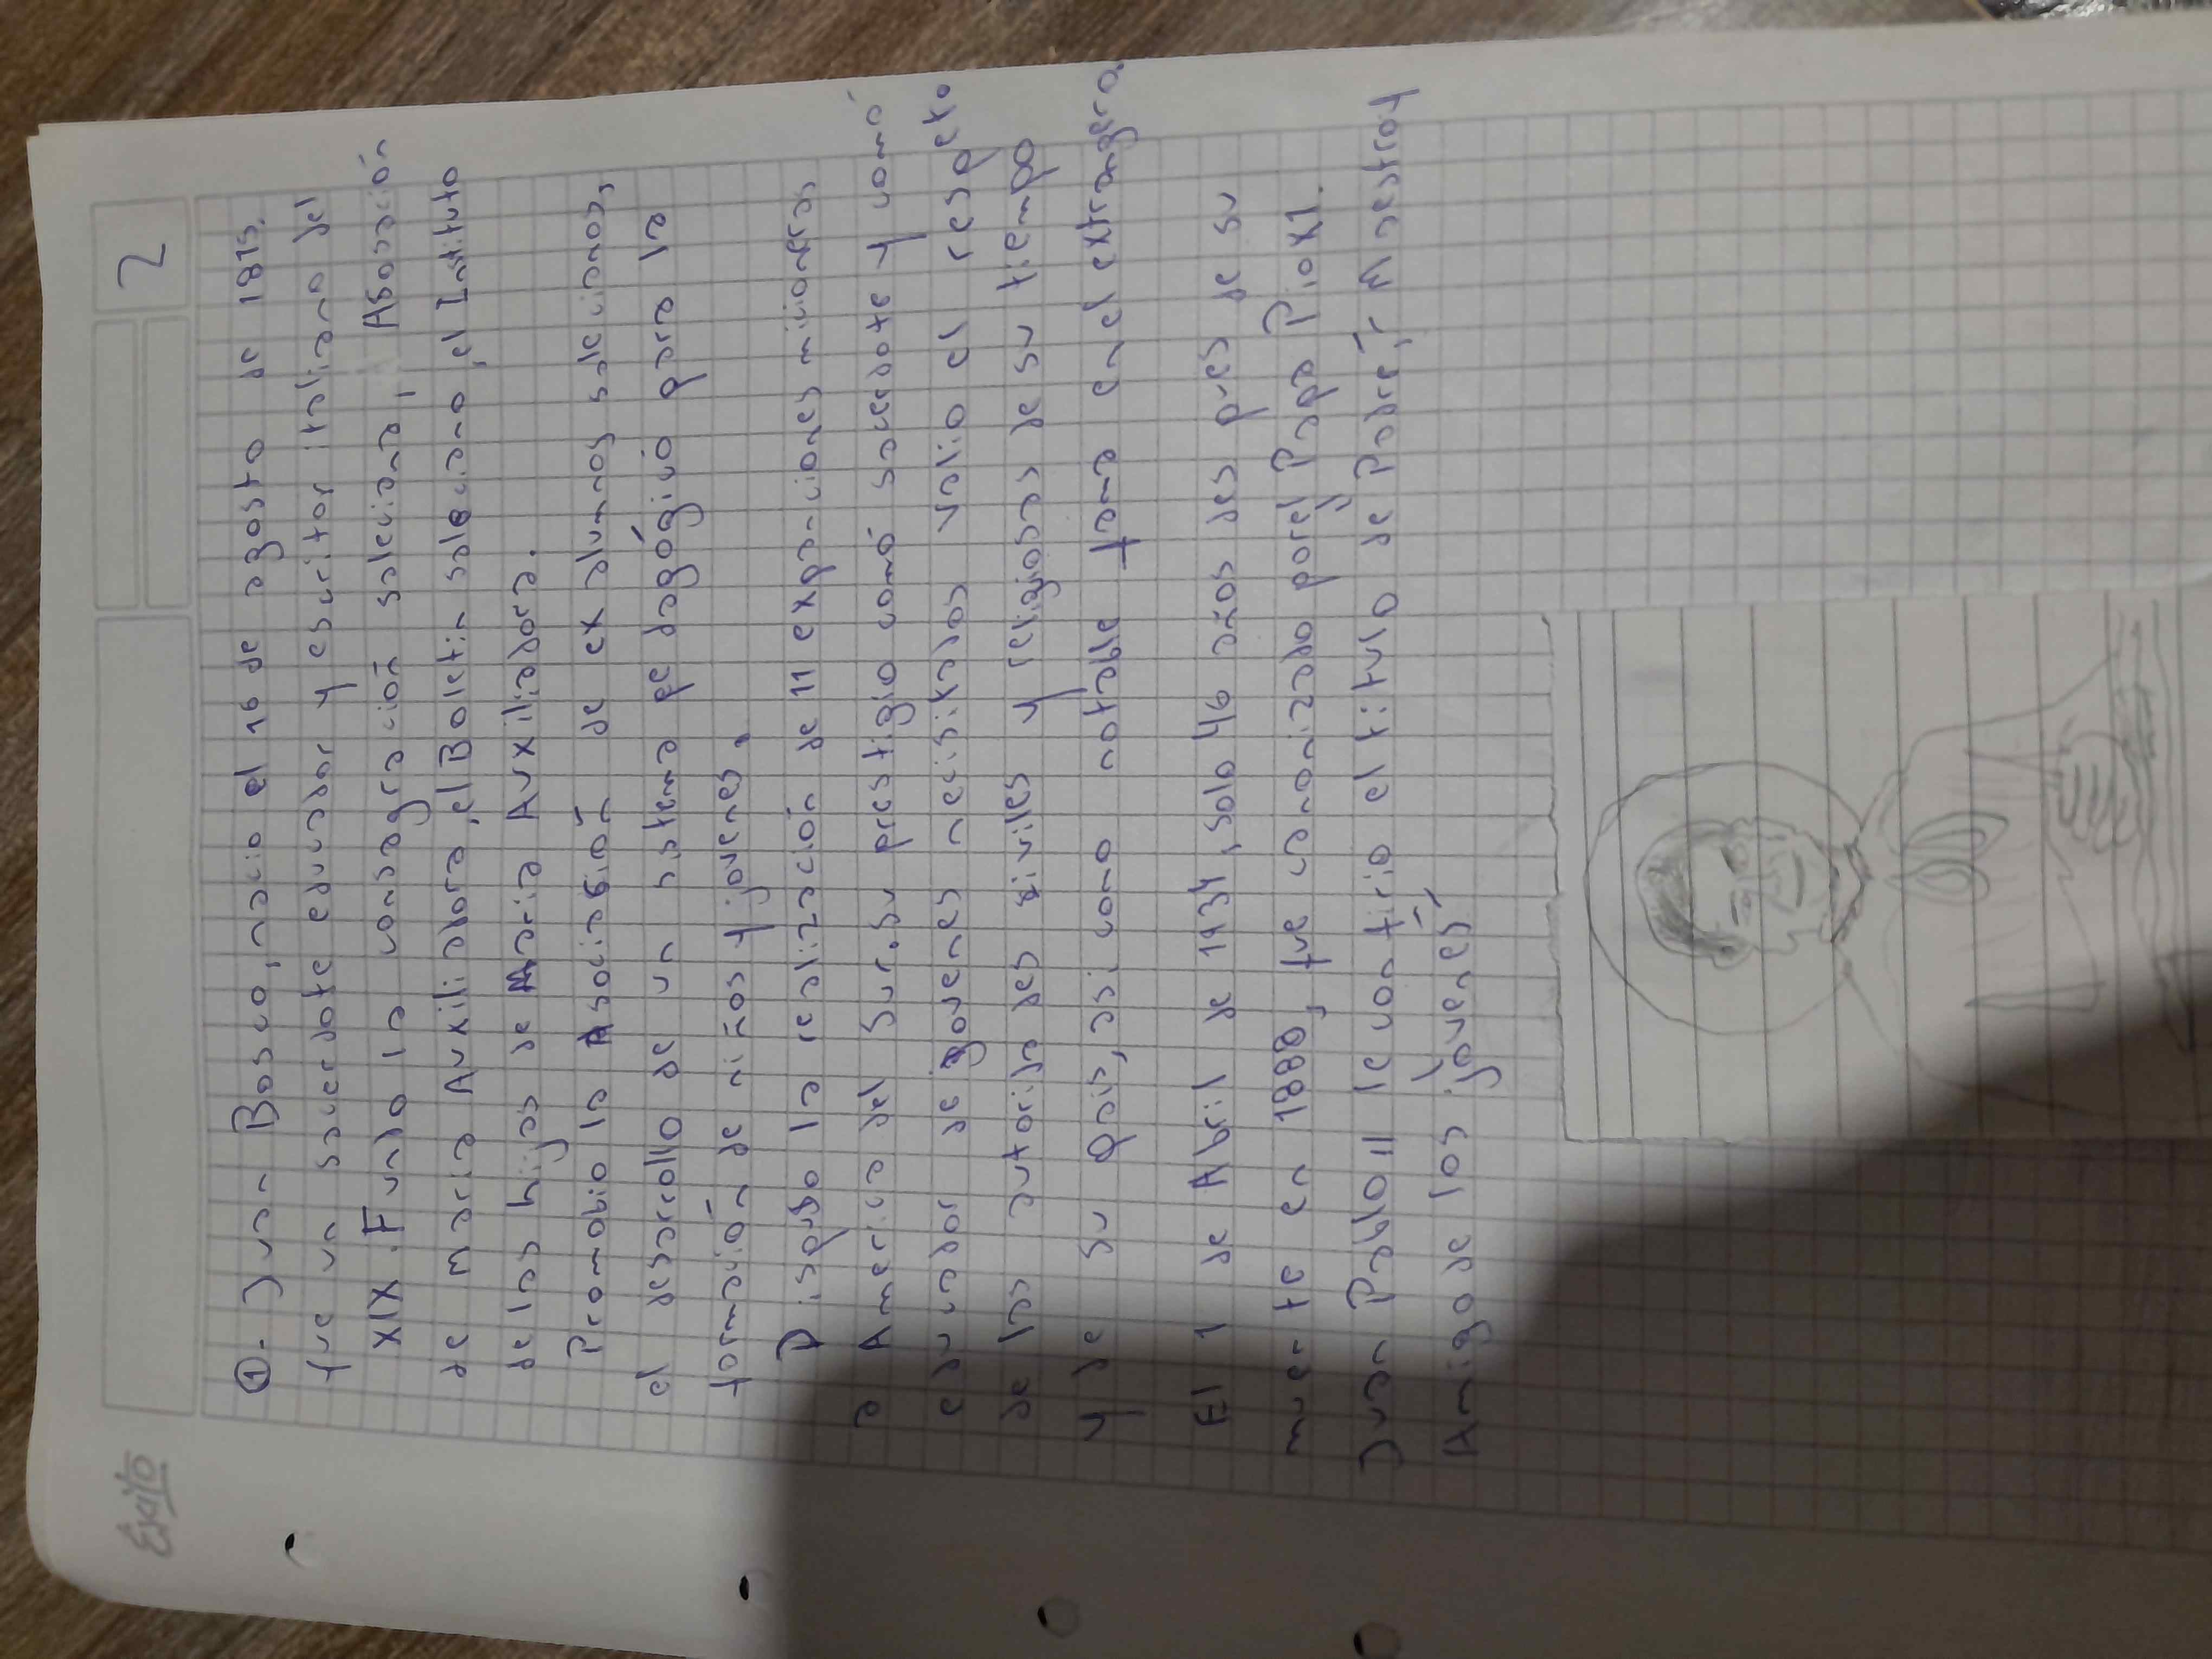 2
Exito
①- Juan Bosco, nacio el 16 de agosto de 1815.
fue un sacerdote educador y escritor italiano del
XIX. Fundo la consagración saleciana, Asosación
de maria Auxiliadora, el Boletin saleciano, el Instituto
de las hijas de Maria Auxiliadora.
Promobio la Asociación de ex alumnos salecianos,
el desarrollo de un sistema pe dagógico para la
formación de niños y jovenes.
Dispuso la realización de 11 expanciones micioneras
a America del Sur. Su prestigio comó sacerdote y comó
educador de jovenes necisitados valio el respeto
de las autorida des civiles y religiosas de su tiempo
y de su pais, asi como notable fama en el extrangero.
El 1 de Abril de 1934, solo 46 años des pues de su
muer te en 1888, fue canonizado por el Papa Pio XI.
Juan Pablo II le confirio el titulo de "Padre, Maestro y
Amigo de los jovenes"